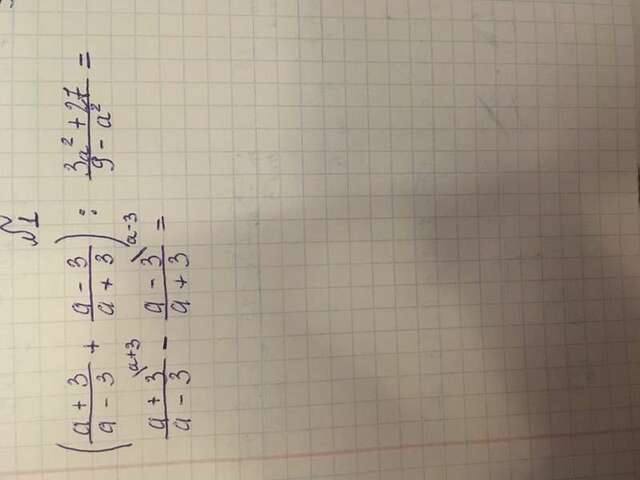 №1
(a + 3 / a - 3 + a - 3 / a + 3) : 3a² + 27 / 9 - a² =
a + 3 \a+3 / a - 3 - a - 3 \a-3 / a + 3 =